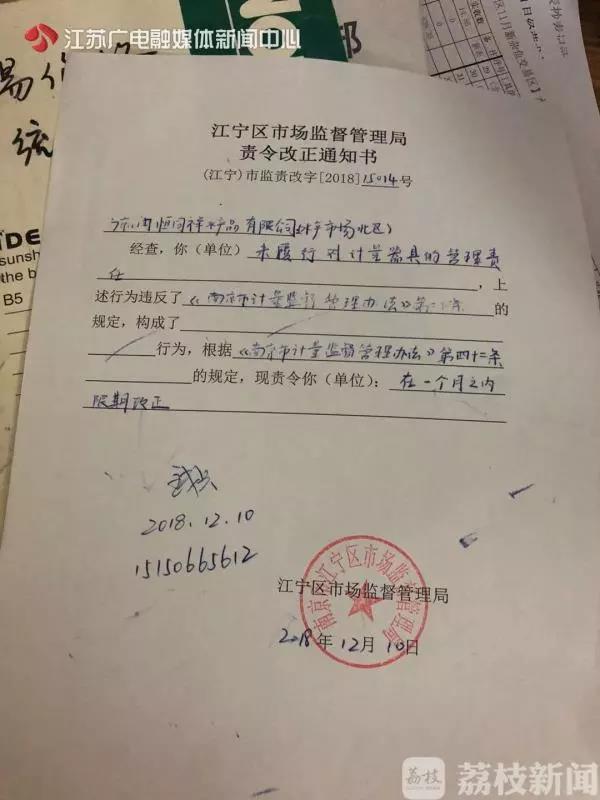 江苏广电融媒体新闻中心
易
统
部
IDE
sunsh
the b
B5
区11月
江宁区市场监督管理局
责令改正通知书
(江宁)市监责改字[2018]15014号
恒同祥水产品有限公司 市场北区)
经查,你(单位)未履行对计量器具的管理责
任,上
述行为违反了《南京市计量监督管理办法》第二条的
规定,构成了
行为,根据《南京市计量监督管理办法》第四十二条
的规定,现责令你(单位):在一个月之内
限期改正
2018.12.10
15150665612
江宁区市场监督管理局
南京市江宁区市场监督管理局
2018年12月10日
荔枝
荔枝新闻